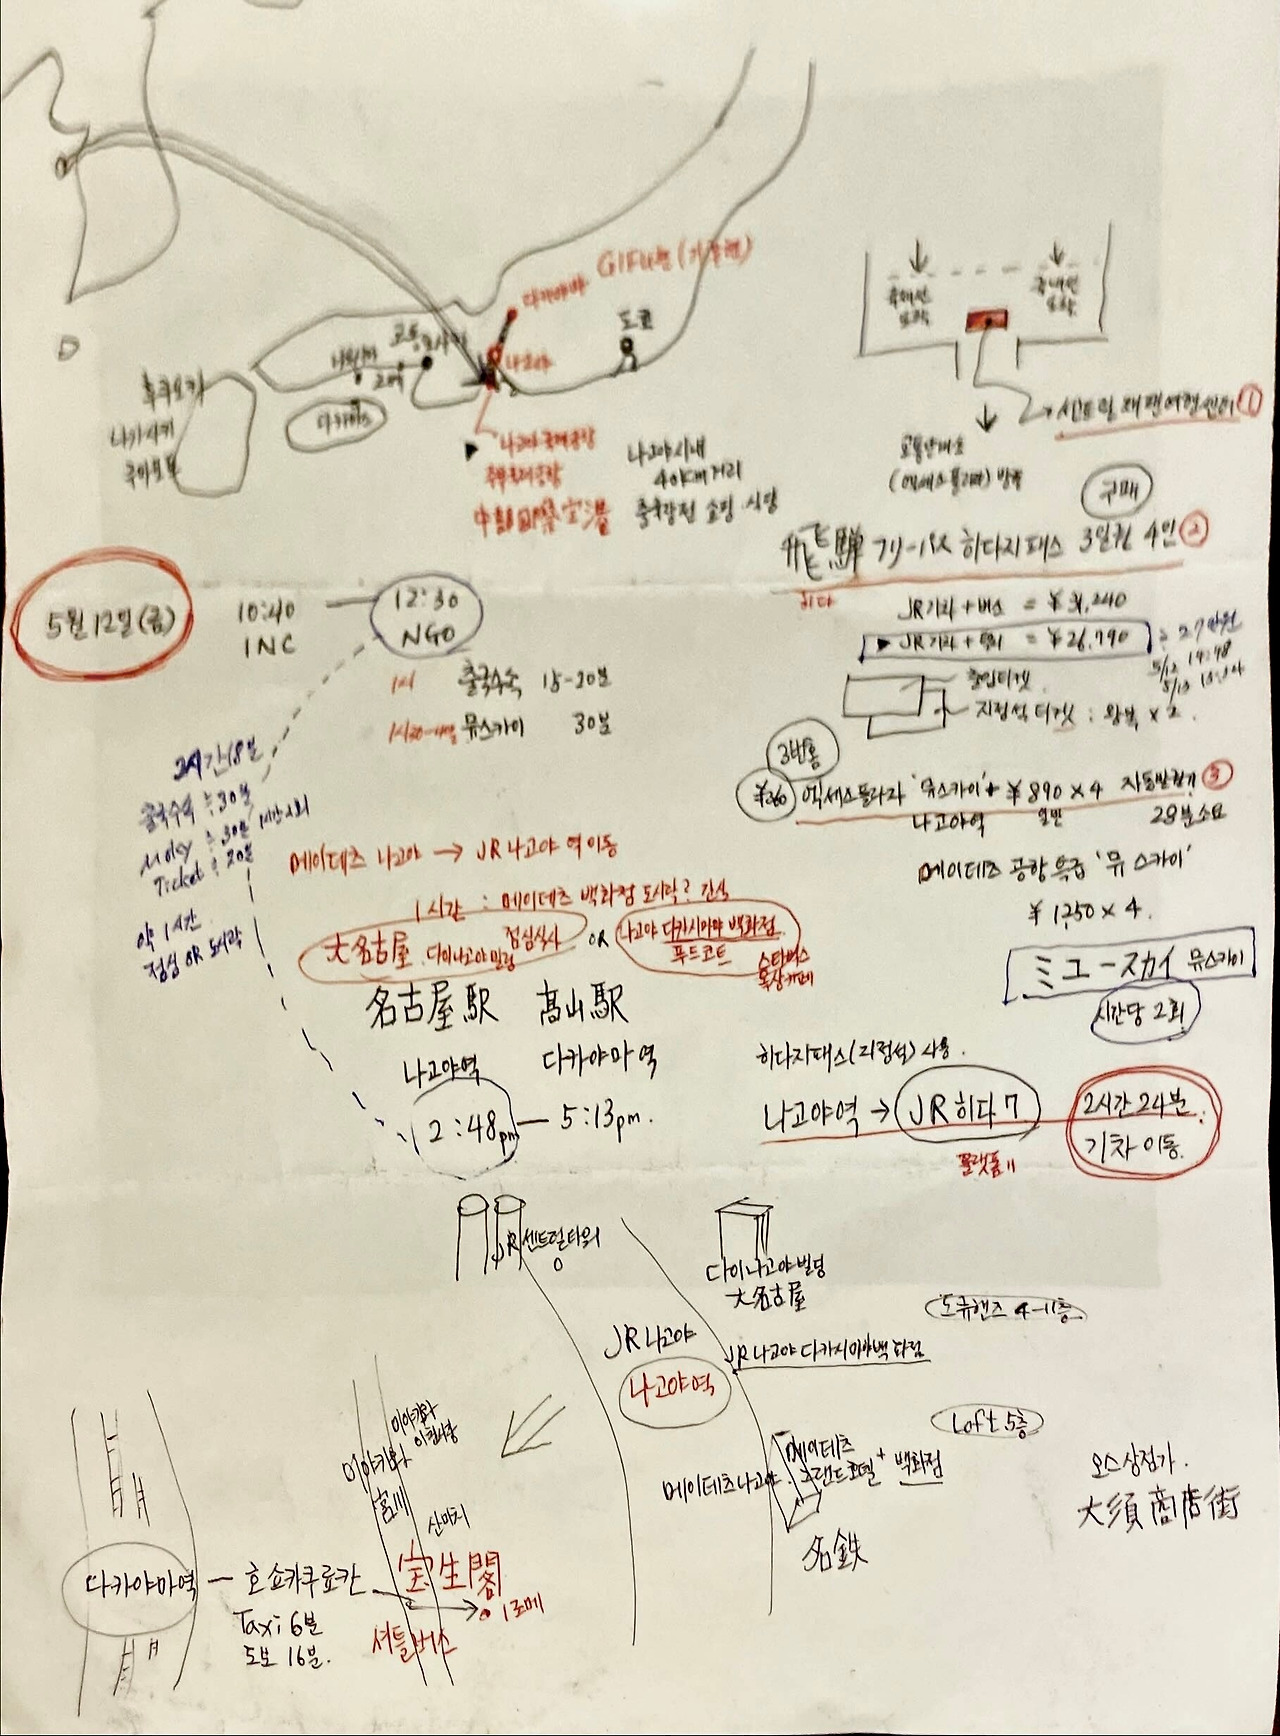 다카야마 GIFU현 (기후현)
도쿄
나고야
후쿠오카
나가사키
나고야 국제공항
나고야 시내
40km 거리
국제선
도착
국내선
도착
센트럴 재팬 여행센터 ①
(억세스플라자) 방향
구매
飛騨 フリーパス 히다지패스 3일권 4인 ②
히다
JR기차 + 버스 = ¥31,240
▶ JR기차 + = ¥26,790
≒ 27만원
5/12 14:48
출입티켓
지정석 티켓 : 왕복 × 2
5월 12일 (금)
10:40
INC
12:30
NGO
1시 출국수속 15-20분
뮤스카이 30분
2시간 18분
출국수속 ≒ 30분
≒ 30분
Ticket : 20분
약 1시간
점심 OR 도시락
3번홈
¥260 억세스플라자 '뮤스카이' + ¥890 × 4 자동발권기 ③
나고야역 일반 28분소요
메이테츠 공항 특급 '뮤 스카이'
¥1,250 × 4.
ミュースカイ 뮤스카이
시간당 2회
메이테츠 나고야 → JR 나고야 역 이동
1시간 : 메이테츠 백화점 도시락? 간식
大名古屋 다이나고야빌딩 점심식사 OR 나고야 다카시마야 백화점
푸드코트
스타벅스
옥상카페
名古屋駅 高山駅
나고야역 다카야마 역
2:48pm — 5:13pm.
히다지패스(지정석) 사용.
나고야역 → JR 히다 7
플랫폼 11
2시간 24분
기차 이동
JR센트럴타워
다이나고야빌딩
大名古屋
도큐핸즈 4-11층
JR 나고야
나고야역
JR나고야 다카시마야백화점
Loft 5층
미야가와
아침시장
미야가와
宮川
산마치
메이테츠나고야
메이테츠
그랜드호텔 + 백화점
名鉄
오스상점가.
大須商店街
다카야마역 — 호쇼카쿠료칸
宝生閣
Taxi 6분
도보 16분.
셔틀버스
1초메